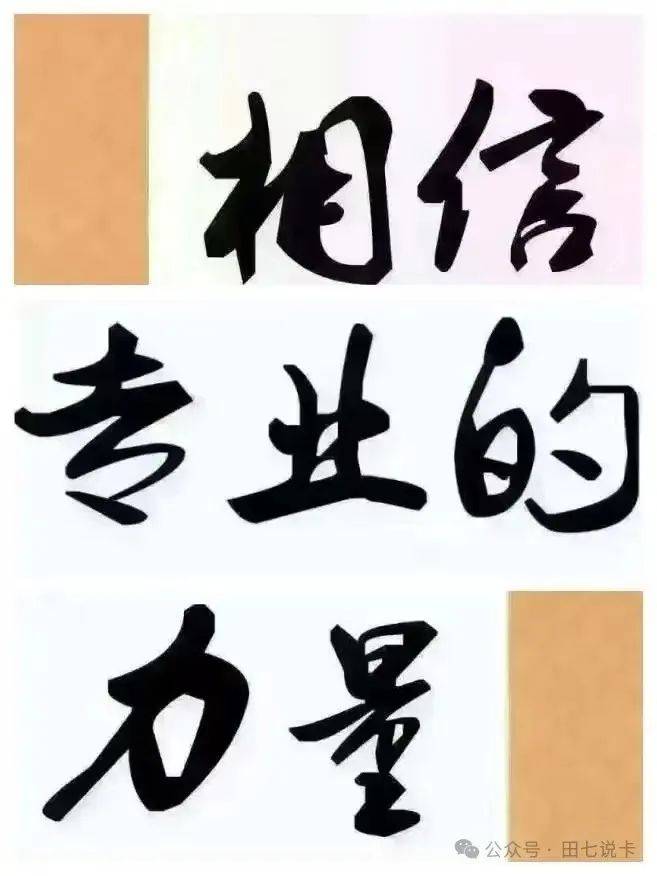 相信
专业的
力量
公众号·田七说卡